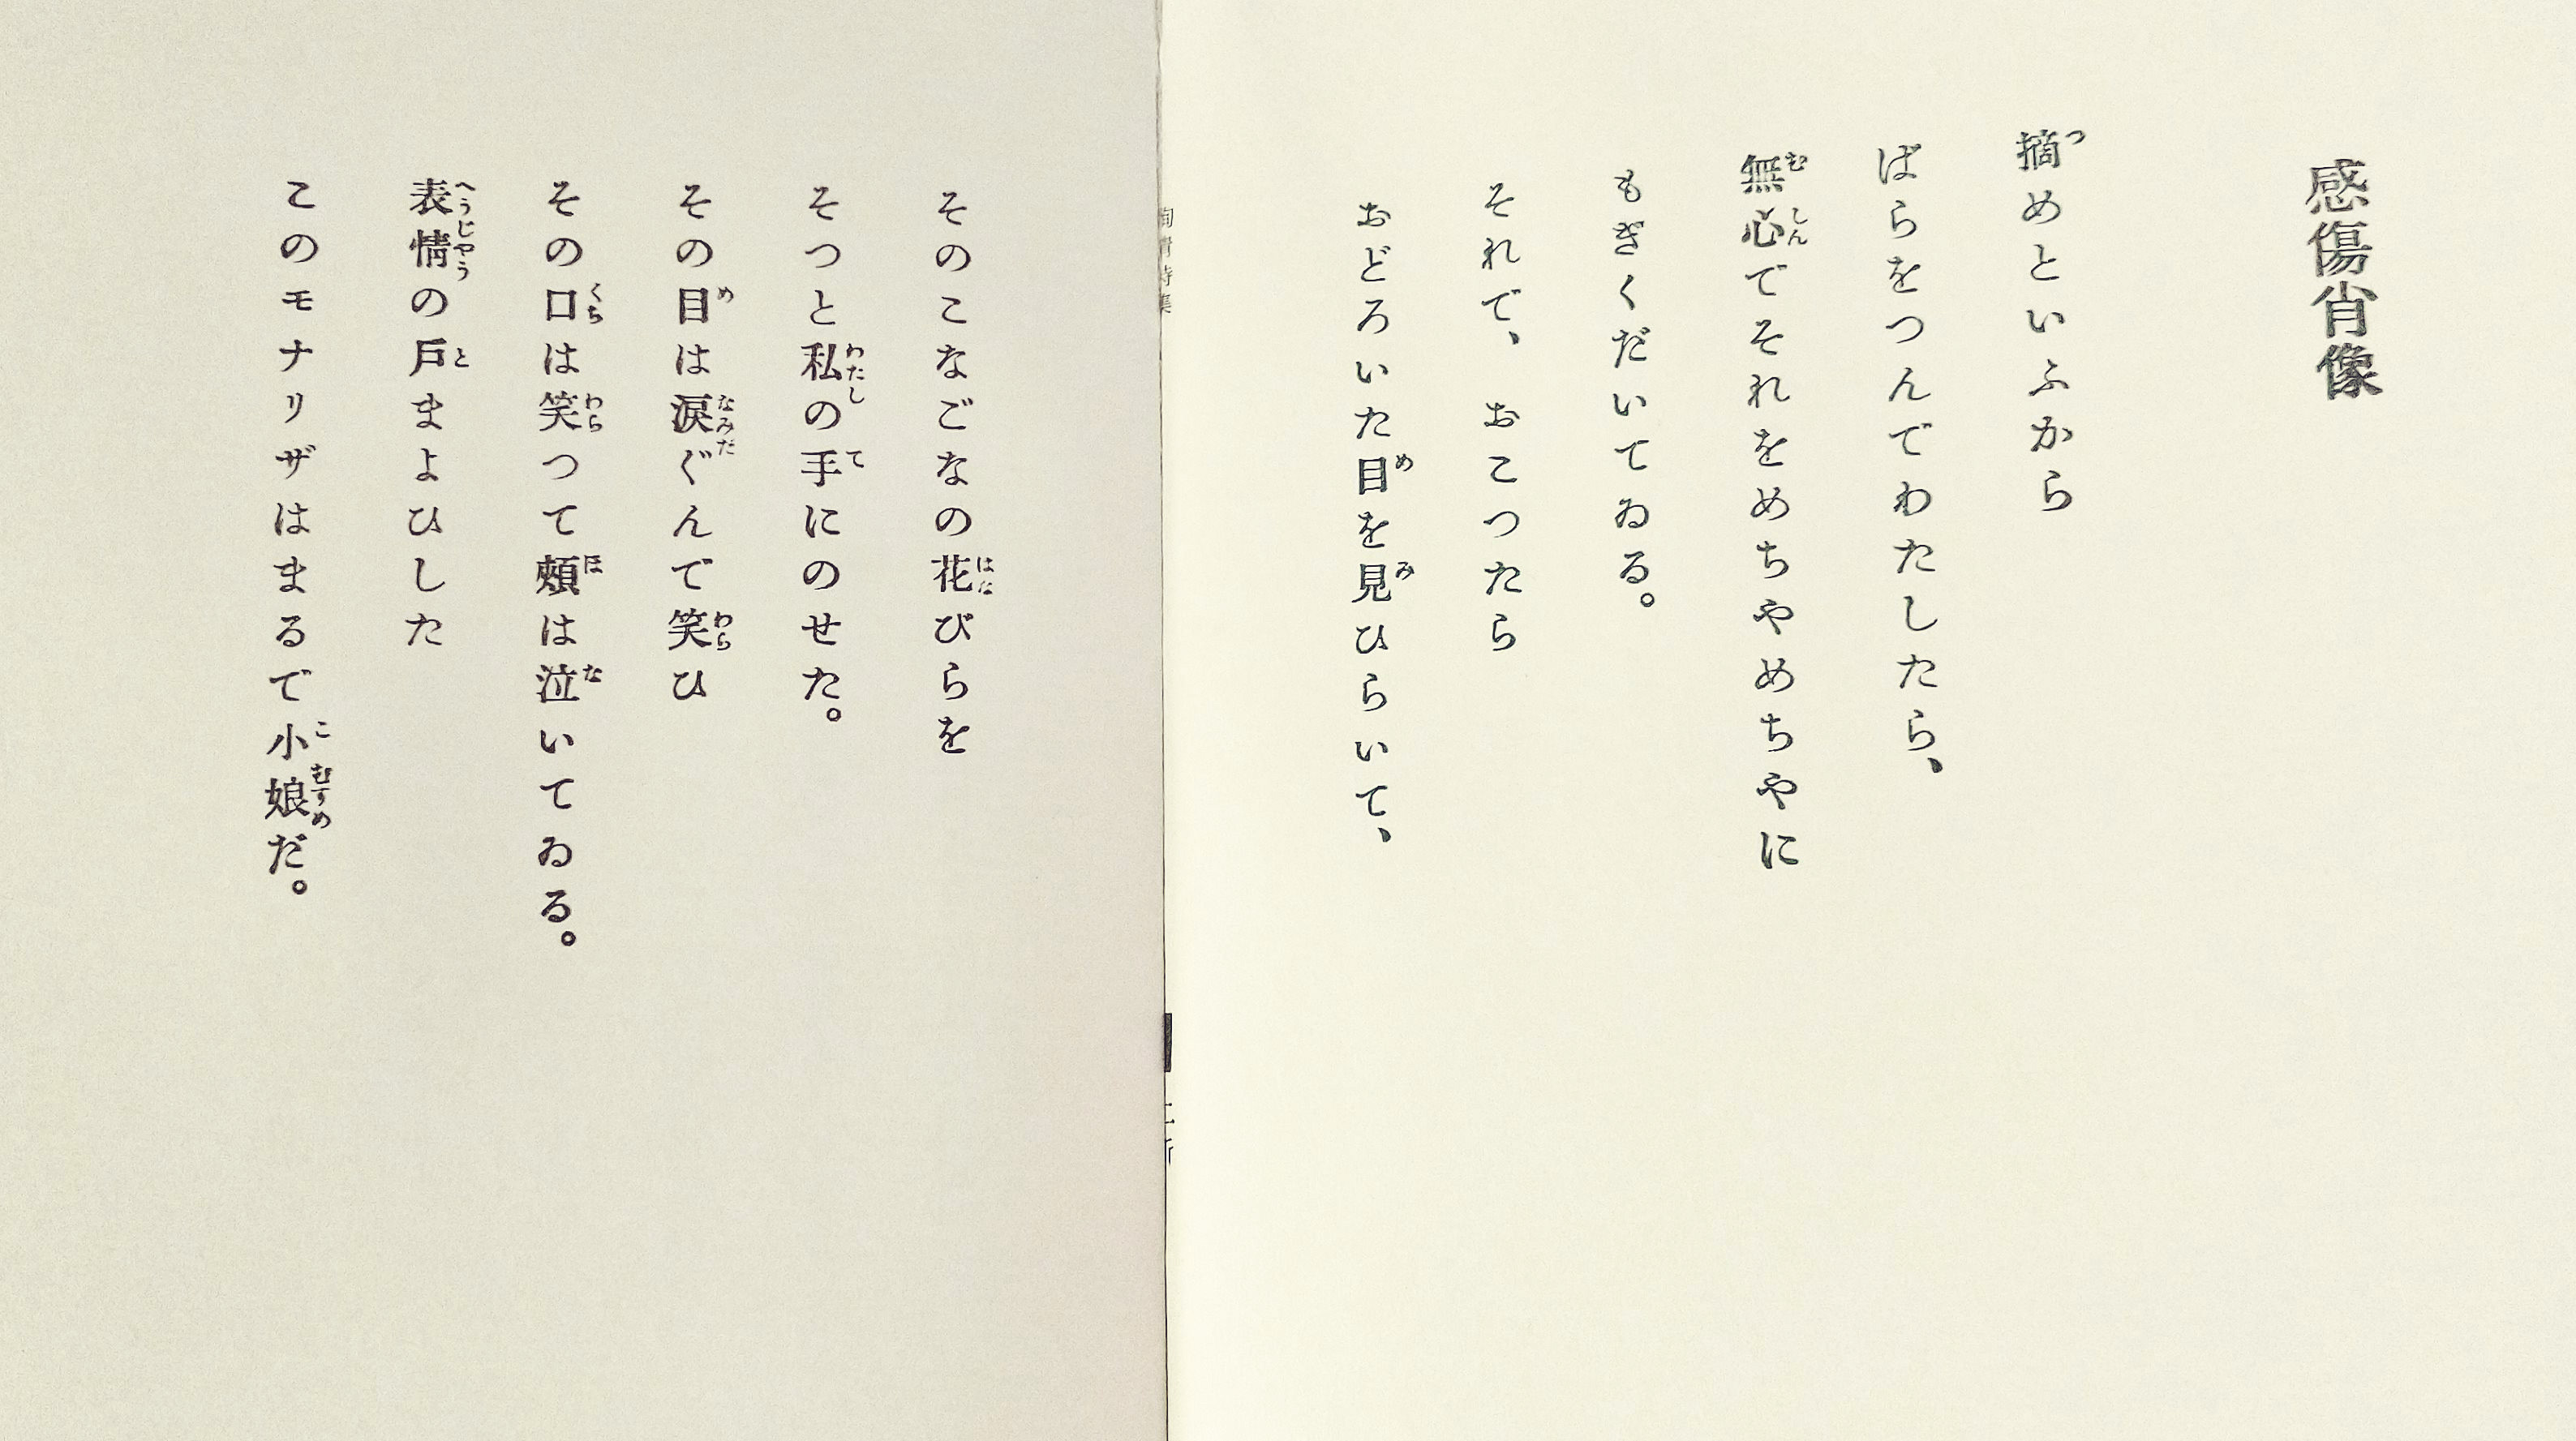 感傷肖像
摘めといふから
ばらをつんでわたしたら、
無心でそれをめちやめちやに
もぎくだいてゐる。
それで、おこつたら
おどろいた目を見ひらいて、
そのこなごなの花びらを
そつと私の手にのせた。
その目は涙ぐんで笑ひ
その口は笑つて頬は泣いてゐる。
表情の戸まよひした
このモナリザはまるで小娘だ。